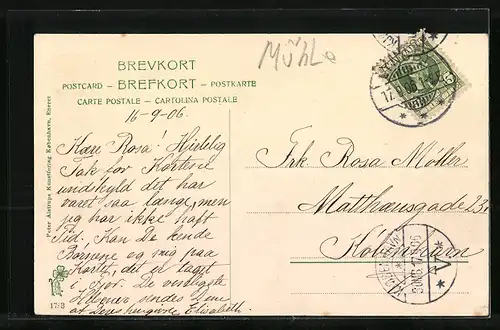 Mühle
BREVKORT
POSTCARD – BREFKORT – POSTKARTE
CARTE POSTALE – CARTOLINA POSTALE
16-9-06.
Kære Rosa! Hjertelig
Tak for Kortene
undskyld det har
varet saa længe, men
jeg har ikke haft
Tid. Kan De kende
Børnene og mig paa
Kortet, det er taget
i Fjor. De venligste
Hilsener sendes Dem
af Deres hengivne Elisabeth.
Frk Rosa Møller
Matthæusgade 23
København
Peter Alstrups Kunstforlag København, Eneret